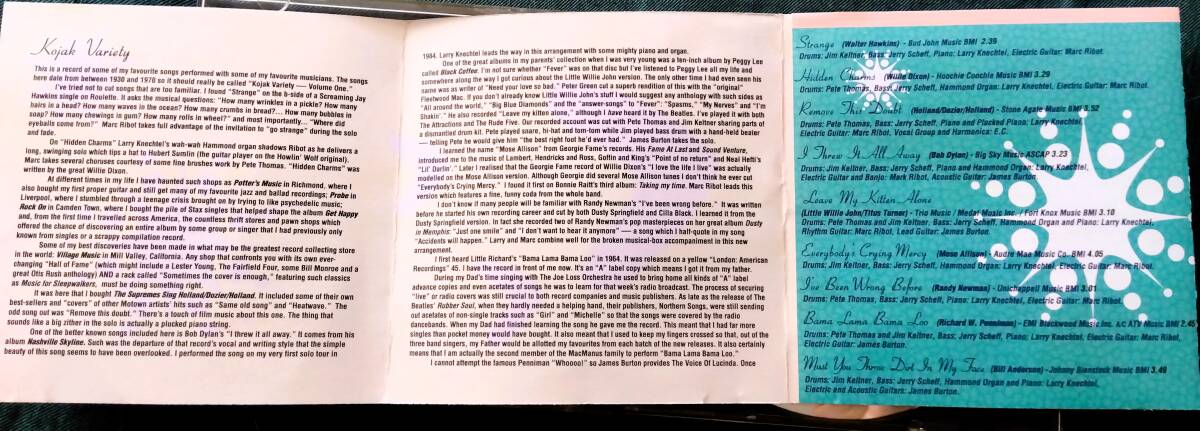 Kojak Variety
This is a record of some of my favourite songs performed with some of my favourite musicians. The songs
here date from between 1930 and 1970 so it should really be called "Kojak Variety — Volume One."
I've tried not to cut songs that are too familiar. I found "Strange" on the b-side of a Screaming Jay
Hawkins single on Roulette. It asks the musical questions: "How many wrinkles in a pickle? How many
hairs in a head? How many waves in the ocean? How many crumbs in bread?... How many bubbles in
soap? How many chewings in gum? How many rolls in wheel?" and most importantly... "Where did
eyeballs come from?" Marc Ribot takes full advantage of the invitation to "go strange" during the solo
and fade.
On "Hidden Charms" Larry Knechtel's wah-wah Hammond organ shadows Ribot as he delivers a
long, swinging solo which tips a hat to Hubert Sumlin (the guitar player on the Howlin' Wolf original).
Marc takes several choruses courtesy of some fine brushes work by Pete Thomas. "Hidden Charms" was
written by the great Willie Dixon.
At different times in my life I have haunted such shops as Potter's Music in Richmond, where I
also bought my first proper guitar and still get many of my favourite jazz and ballad recordings; Probe in
Liverpool, where I stumbled through a teenage crisis brought on by trying to like psychedelic music;
Rock On in Camden Town, where I bought the pile of Stax singles that helped shape the album Get Happy
and, from the first time I travelled across America, the countless thrift stores and pawn shops which
offered the chance of discovering an entire album by some group or singer that I had previously only
known from singles or a scrappy compilation record.
Some of my best discoveries have been made in what may be the greatest record collecting store
in the world: Village Music in Mill Valley, California. Any shop that confronts you with its own ever-
changing "Hall of Fame" (which might include a Lester Young, The Fairfield Four, some Bill Monroe and a
great Otis Rush anthology) AND a rack called "Sometimes the cover is enough," featuring such classics
as Music for Sleepwalkers, must be doing something right.
It was here that I bought The Supremes Sing Holland/Dozier/Holland. It included some of their own
best-sellers and "covers" of other Motown artists' hits such as "Same old song" and "Heatwave." The
odd song out was "Remove this doubt." There's a touch of film music about this one. The thing that
sounds like a big zither in the solo is actually a plucked piano string.
One of the better known songs included here is Bob Dylan's "I threw it all away." It comes from his
album Nashville Skyline. Such was the departure of that record's vocal and writing style that the simple
beauty of this song seems to have been overlooked. I performed the song on my very first solo tour in
1984. Larry Knechtel leads the way in this arrangement with some mighty piano and organ.
One of the great albums in my parents' collection when I was very young was a ten-inch album by Peggy Lee
called Black Coffee. I'm not sure whether "Fever" was on that disc but I've listened to Peggy Lee all my life and
somewhere along the way I got curious about the Little Willie John version. The only other time I had even seen his
name was as writer of "Need your love so bad." Peter Green cut a superb rendition of this with the "original"
Fleetwood Mac. If you don't already know Little Willie John's stuff I would suggest any anthology with such sides as
"All around the world," "Big Blue Diamonds" and the "answer-songs" to "Fever": "Spasms," "My Nerves" and "I'm
Shakin'". He also recorded "Leave my kitten alone," although I have heard it by The Beatles. I've played it with both
The Attractions and The Rude Five. Our recorded account was cut with Pete Thomas and Jim Keltner sharing parts of
a dismantled drum kit. Pete played snare, hi-hat and tom-tom while Jim played bass drum with a hand-held beater
— telling Pete he would give him "the best right foot he'd ever had." James Burton takes the solo.
I learned the name "Mose Allison" from Georgie Fame's records. His Fame At Last and Sound Venture,
introduced me to the music of Lambert, Hendricks and Ross, Goffin and King's "Point of no return" and Neal Hefti's
"Lil' Darlin'." Later I realised that the Georgie Fame record of Willie Dixon's "I love the life I live" was actually
modelled on the Mose Allison version. Although Georgie did several Mose Allison tunes I don't think he ever cut
"Everybody's Crying Mercy." I found it first on Bonnie Raitt's third album: Taking my time. Marc Ribot leads this
version which features a fine, funny coda from the whole band.
I don't know if many people will be familiar with Randy Newman's "I've been wrong before." It was written
before he started his own recording career and cut by both Dusty Springfield and Cilla Black. I learned it from the
Dusty Springfield version. In fact she recorded two of Randy Newman's pop masterpieces on her great album Dusty
in Memphis: "Just one smile" and "I don't want to hear it anymore" — a song which I half-quote in my song
"Accidents will happen." Larry and Marc combine well for the broken musical-box accompaniment in this new
arrangement.
I first heard Little Richard's "Bama Lama Bama Loo" in 1964. It was released on a yellow "London: American
Recordings" 45. I have the record in front of me now. It's an "A" label copy which means I got it from my father.
During my Dad's time singing with The Joe Loss Orchestra he used to bring home all kinds of "A" label
advance copies and even acetates of songs he was to learn for that week's radio broadcast. The process of securing
"live" or radio covers was still crucial to both record companies and music publishers. As late as the release of The
Beatles' Rubber Soul, when they hardly needed a helping hand, their publishers, Northern Songs, were still sending
out acetates of non-single tracks such as "Girl" and "Michelle" so that the songs were covered by the radio
dancebands. When my Dad had finished learning the song he gave me the record. This meant that I had far more
singles than pocket money would have bought. It also meant that I used to keep my fingers crossed so that, out of the
three band singers, my Father would be allotted my favourites from each batch of the new releases. It also certainly
means that I am actually the second member of the MacManus family to perform "Bama Lama Bama Loo."
I cannot attempt the famous Penniman "Whoooo!" so James Burton provides The Voice Of Lucinda. Once
Strange (Walter Hawkins) - Bud John Music BMI 2.39
Drums: Jim Keltner, Bass: Jerry Scheff, Piano: Larry Knechtel, Electric Guitar: Marc Ribot.
Hidden Charms (Willie Dixon) - Hoochie Coochie Music BMI 3.29
Drums: Pete Thomas, Bass: Jerry Scheff, Hammond Organ: Larry Knechtel, Electric Guitar: Marc Ribot.
Remove This Doubt (Holland/Dozier/Holland) - Stone Agate Music BMI 3.52
Drums: Pete Thomas, Bass: Jerry Scheff, Piano and Plucked Piano: Larry Knechtel,
Electric Guitar: Marc Ribot, Vocal Group and Harmonica: E.C.
I Threw It All Away (Bob Dylan) - Big Sky Music ASCAP 3.23
Drums: Jim Keltner, Bass: Jerry Scheff, Piano and Hammond Organ: Larry Knechtel,
Electric Guitar and Banjo: Mark Ribot, Acoustic Guitar: James Burton.
Leave My Kitten Alone
(Little Willie John/Titus Turner) - Trio Music / Medal Music Inc. / Fort Knox Music BMI 3.10
Drums: Pete Thomas and Jim Keltner, Bass: Jerry Scheff, Hammond Organ and Piano: Larry Knechtel,
Rhythm Guitar: Marc Ribot, Lead Guitar: James Burton.
Everybody's Crying Mercy (Mose Allison) - Audre Mae Music Co. BMI 4.05
Drums: Jim Keltner, Bass: Jerry Scheff, Hammond Organ: Larry Knechtel, Electric Guitar: Marc Ribot.
I've Been Wrong Before (Randy Newman) - Unichappell Music BMI 3.01
Drums: Pete Thomas, Bass: Jerry Scheff, Piano: Larry Knechtel, Electric Guitar: Marc Ribot.
Bama Lama Bama Loo (Richard W. Penniman) - EMI Blackwood Music Inc. &c ATV Music BMI 2.45
Drums: Pete Thomas and Jim Keltner, Bass: Jerry Scheff, Piano: Larry Knechtel, Electric Guitar: Marc Ribot,
Electric Guitar: James Burton.
Must You Throw Dirt In My Face (Bill Anderson) - Johnny Bienstock Music BMI 3.49
Drums: Jim Keltner, Bass: Jerry Scheff, Hammond Organ and Piano: Larry Knechtel,
Electric and Acoustic Guitars: James Burton.